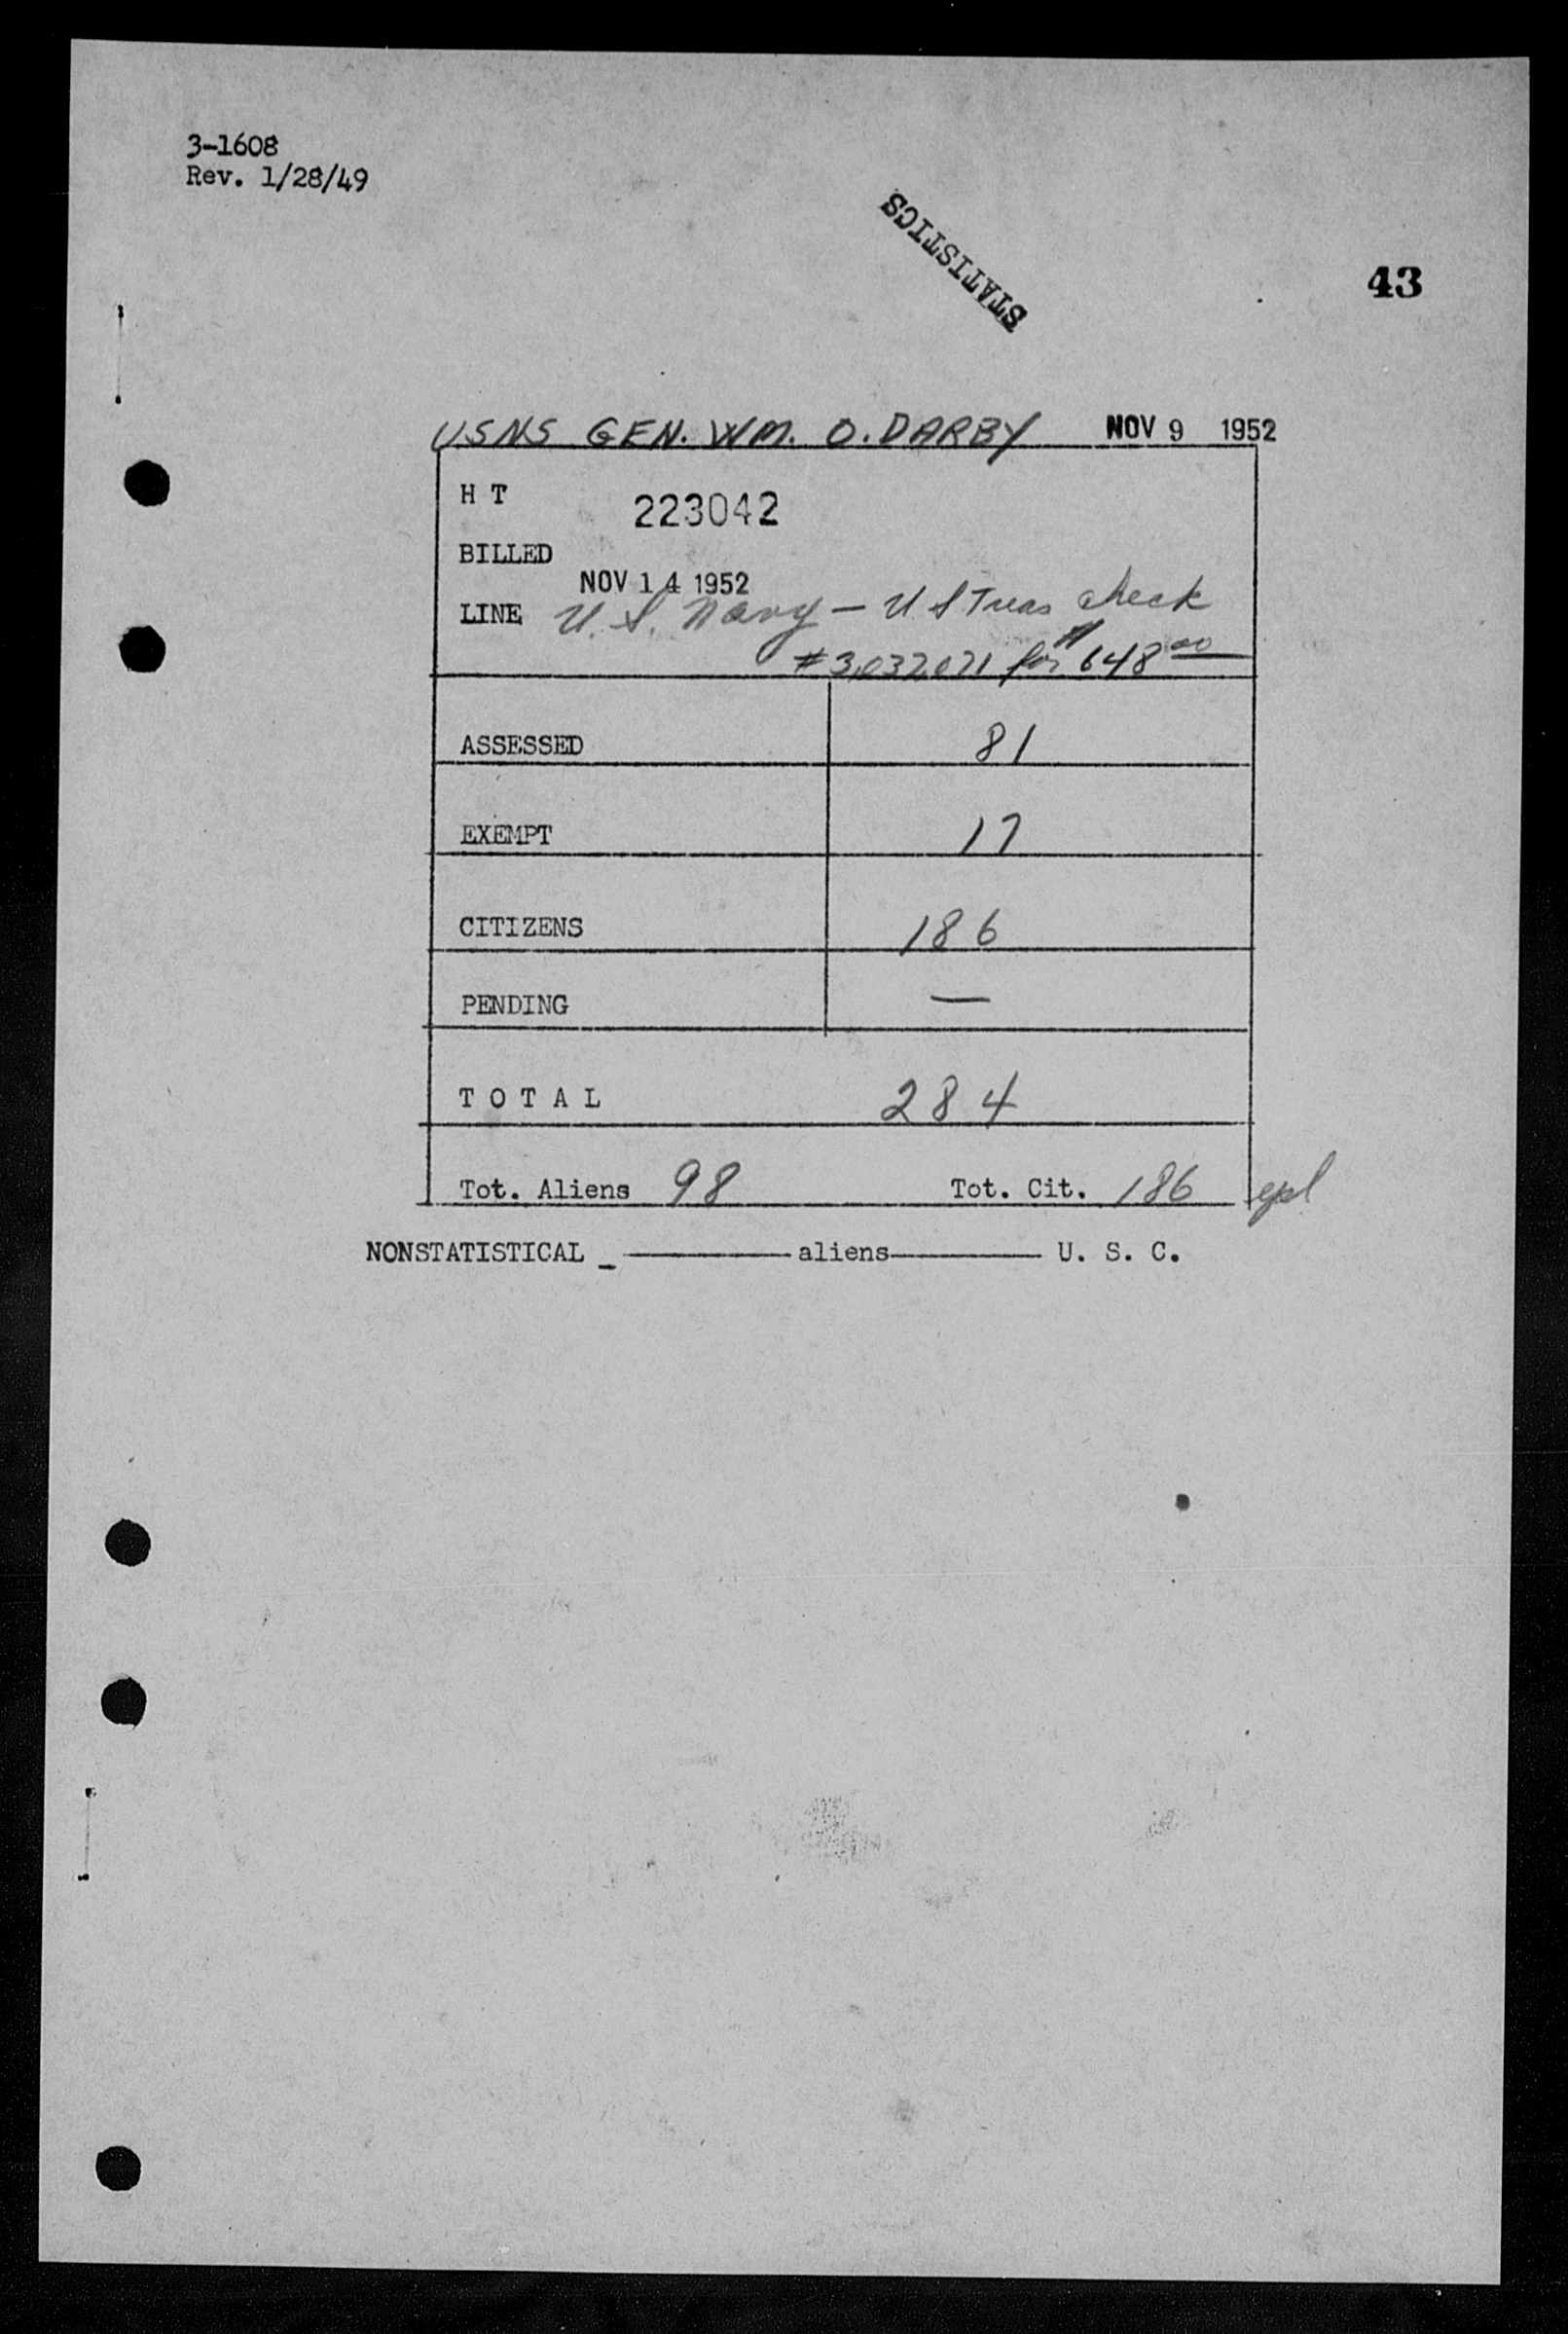 3-1608
Rev. 1/28/49
STATISTICS
43
USNS GEN. WM. O. DARBY NOV 9 1952
H T 223042
BILLED
NOV 14 1952
LINE U. S. Navy - U S Treas check
#3,032,071 for $648.00
ASSESSED 81
EXEMPT 17
CITIZENS 186
PENDING —
T O T A L 284
Tot. Aliens 98 Tot. Cit. 186
NONSTATISTICAL _ ———— aliens ———— U. S. C.